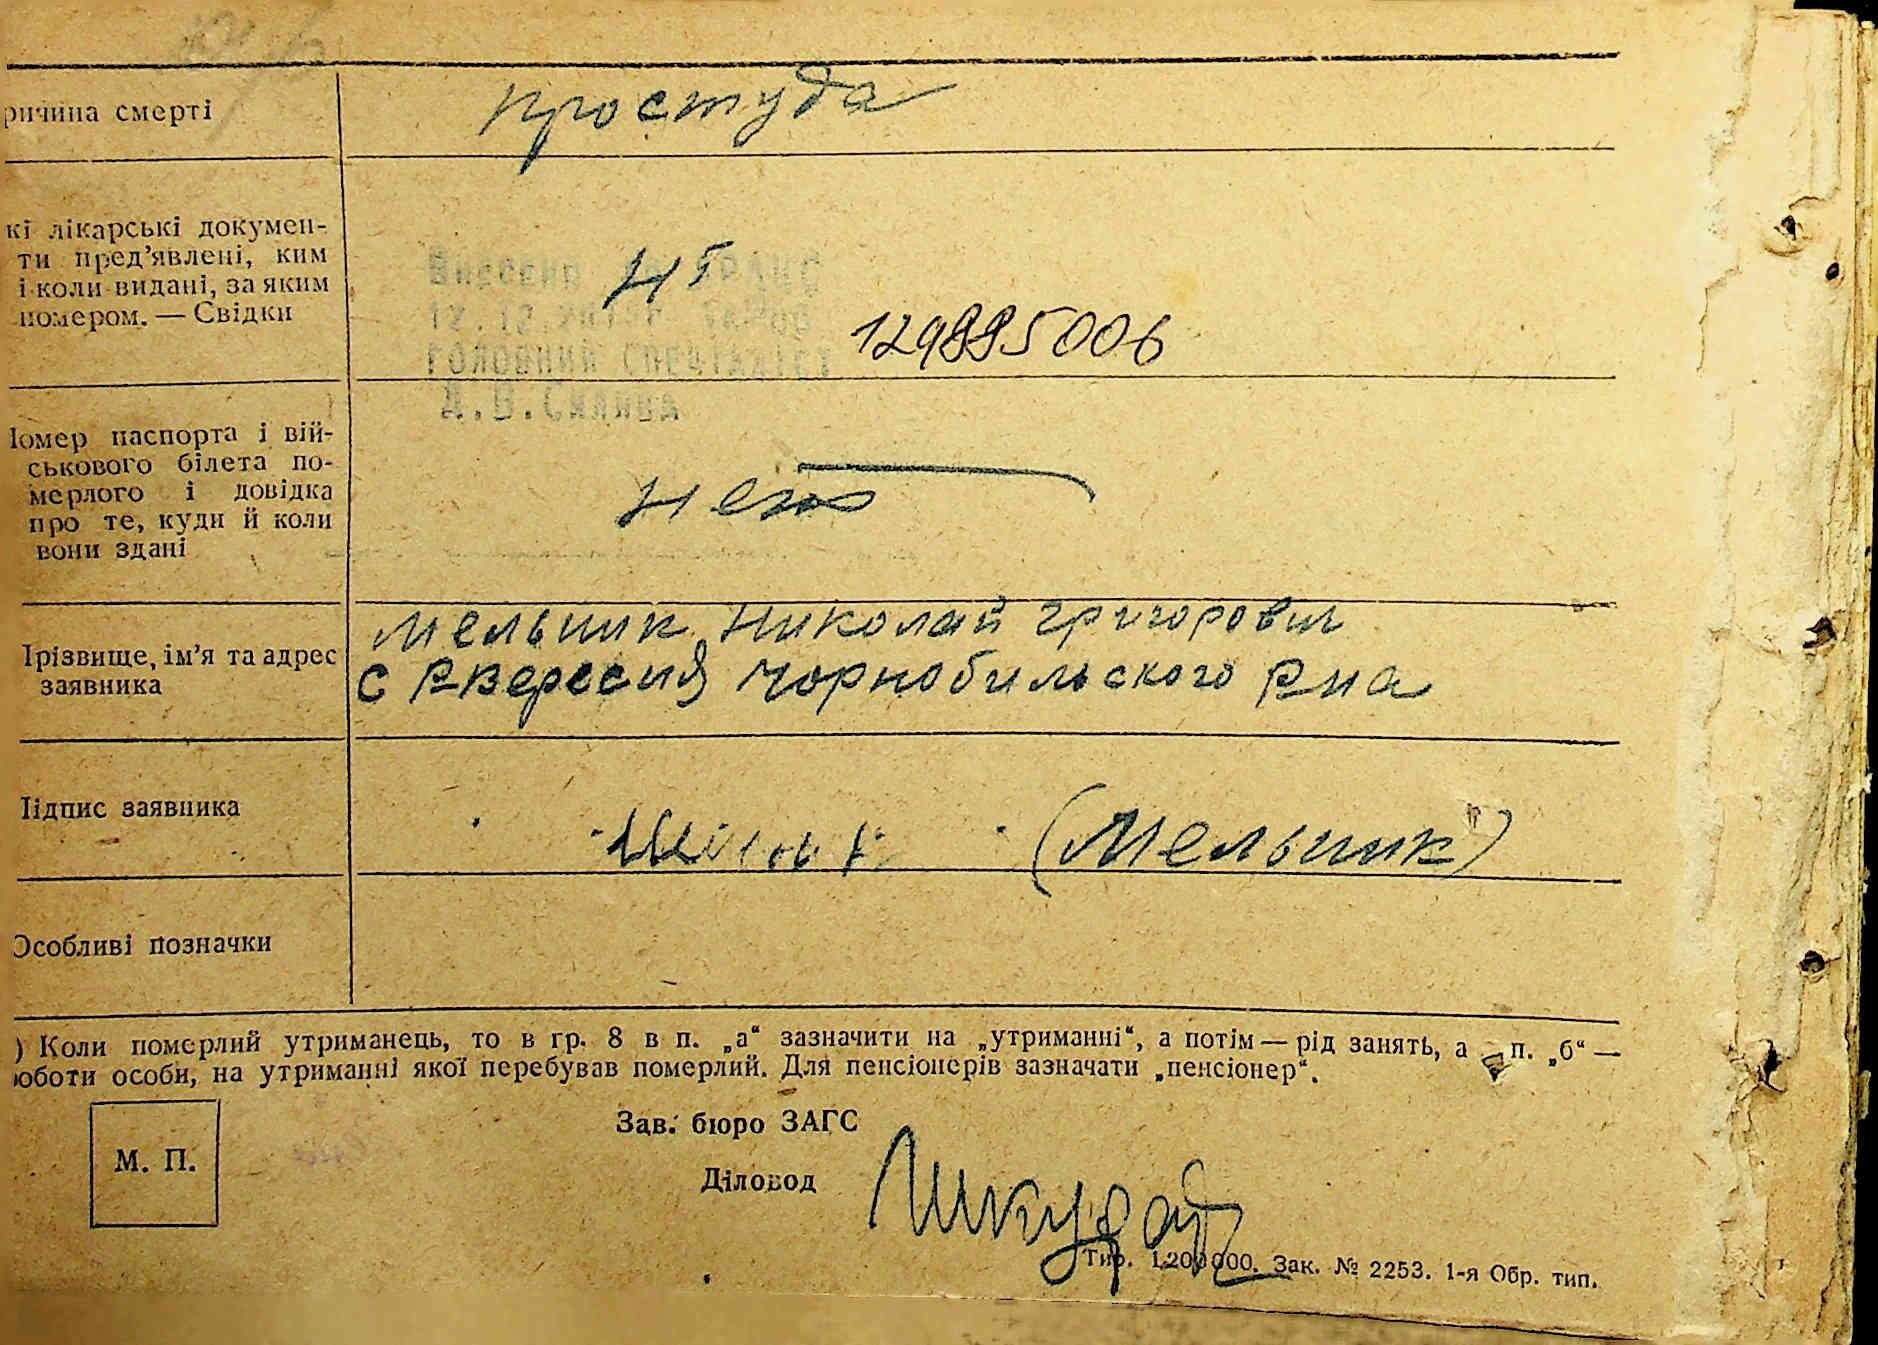 ричина смерті
простуда
кі лікарські докумен-
ти пред’явлені, ким
і коли видані, за яким
номером. — Свідки
Внесено
ГОЛОВНИЙ СПЕЦІАЛІСТ
129885006
Номер паспорта і вій-
ськового білета по-
мерлого і довідка
про те, куди й коли
вони здані
нет
Прізвище, ім’я та адрес
заявника
Мельник Николай Григорович
с Рвересня Чорнобильского Рна
Підпис заявника
(Мельник)
Особливі позначки
) Коли померлий утриманець, то в гр. 8 в п. „а“ зазначити на „утриманні“, а потім — рід занять, а в п. „б“ —
юботи особи, на утриманні якої перебував померлий. Для пенсіонерів зазначати „пенсіонер“.
М. П.
Зав. бюро ЗАГС
Діловод
Тир. 1.200000. Зак. № 2253. 1-я Обр. тип.